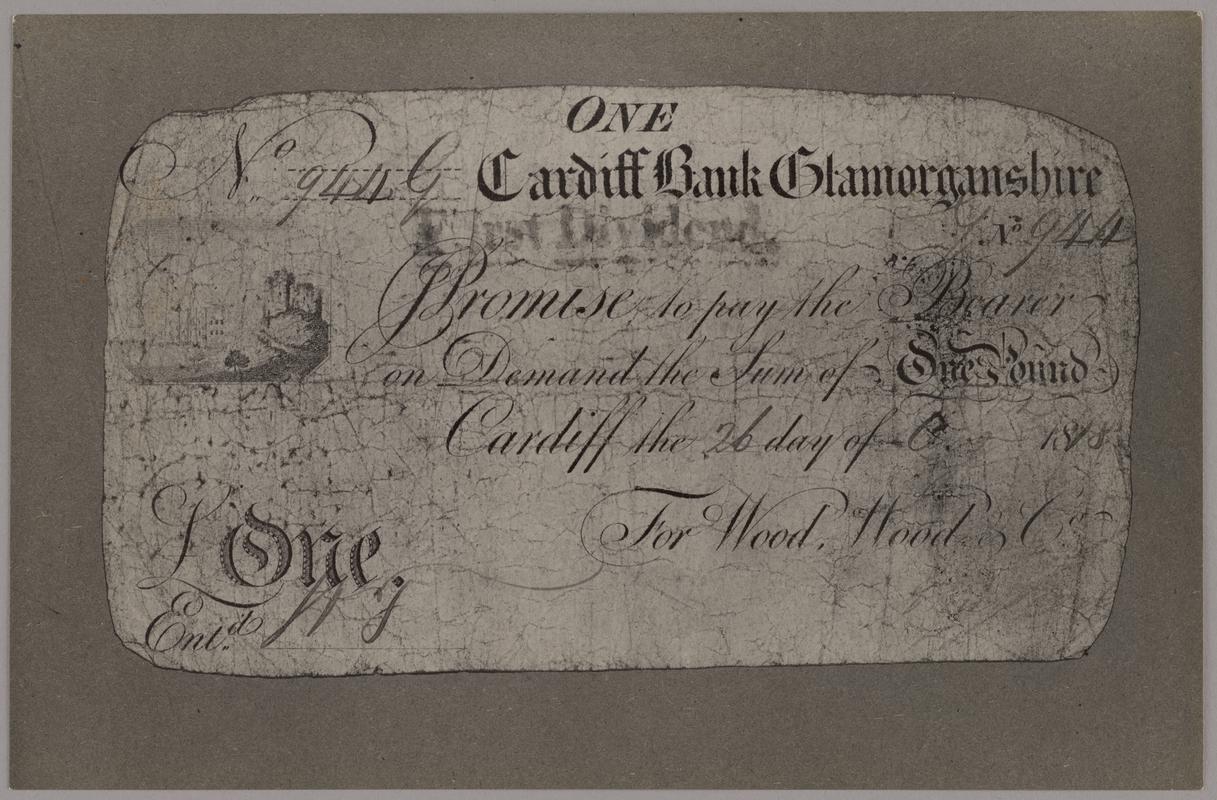 ONE
No 944 G Cardiff Bank Glamorganshire
First Dividend.
No 944
I Promise to pay the Bearer
on Demand the Sum of One Pound
Cardiff the 26 day of 1818
For Wood, Wood, & Co.
£ One.
Entd.